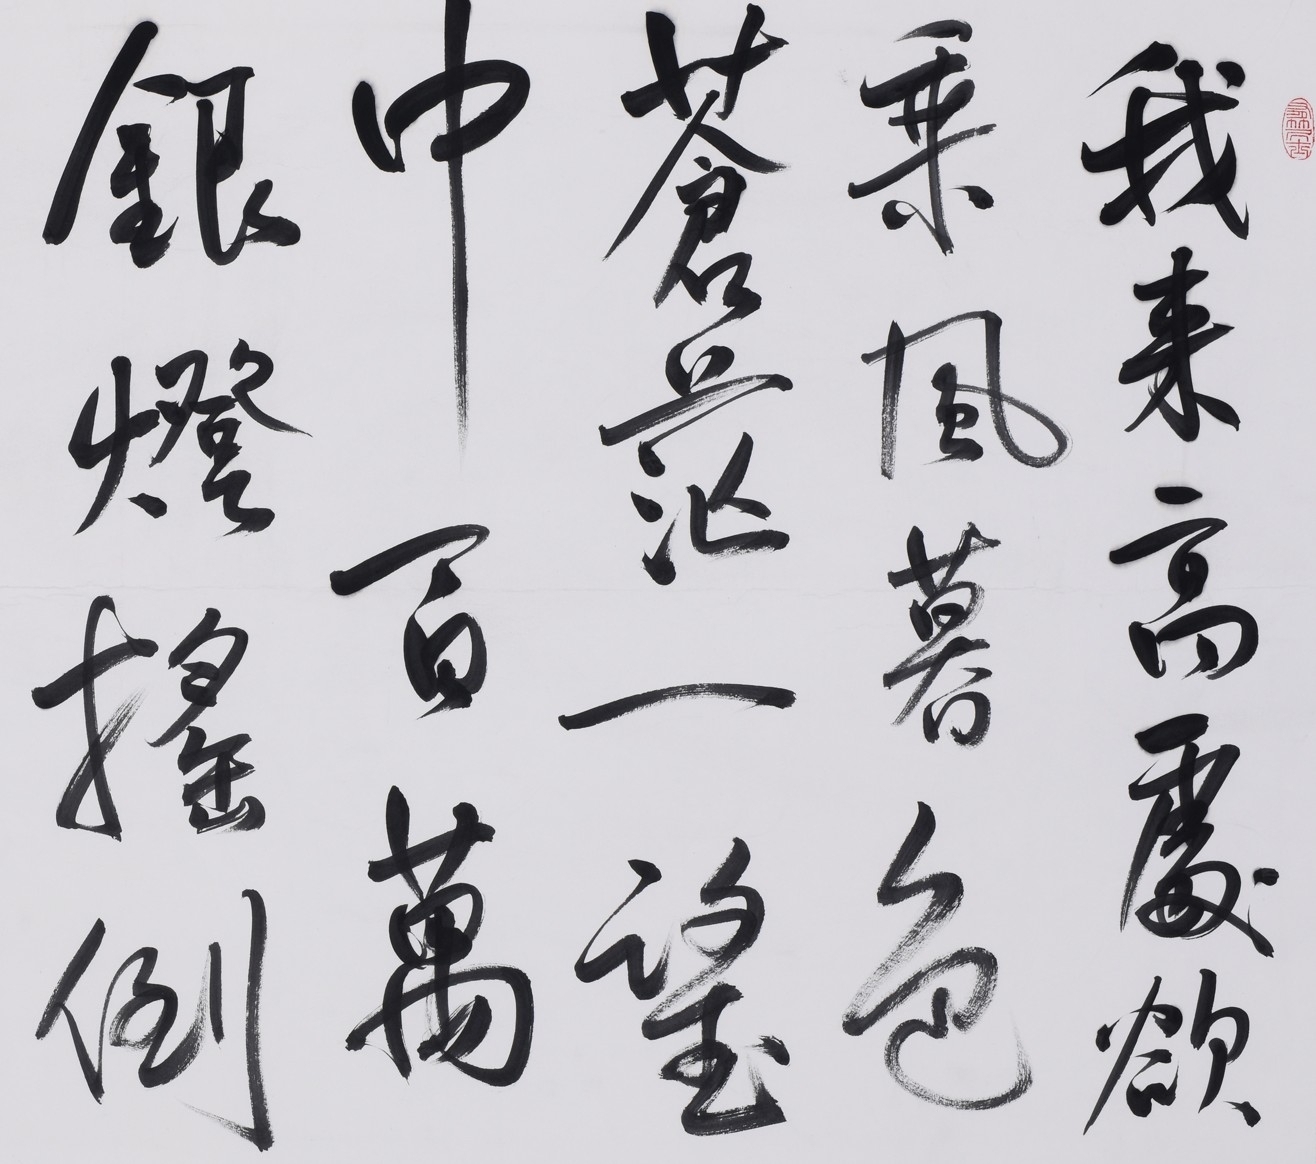 我来高處欲
乘風暮色
蒼茫一望
中百萬
銀燈搖倒